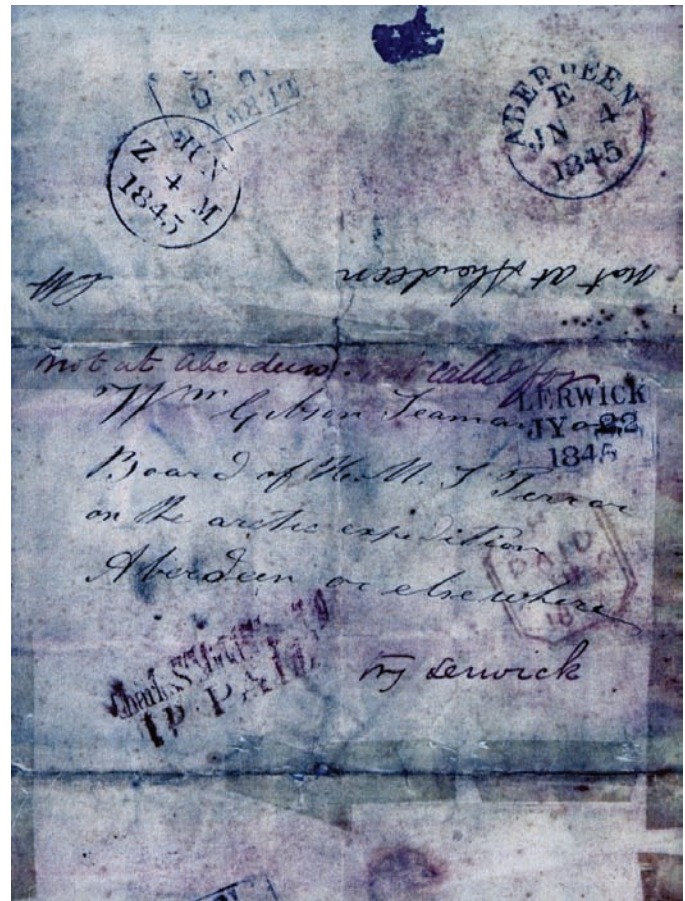 JUN
Z 4 M
1845
ABERDEEN
E
JN 4
1845
not at Aberdeen
not at aberdeen not called for
Wm Gibson Seaman on
LERWICK
JY 22
1845
Board of H. M. S Terror
on the arctic expedition
Aberdeen or elsewhere
PAID
18
try Lerwick
Charles St
1D PAID